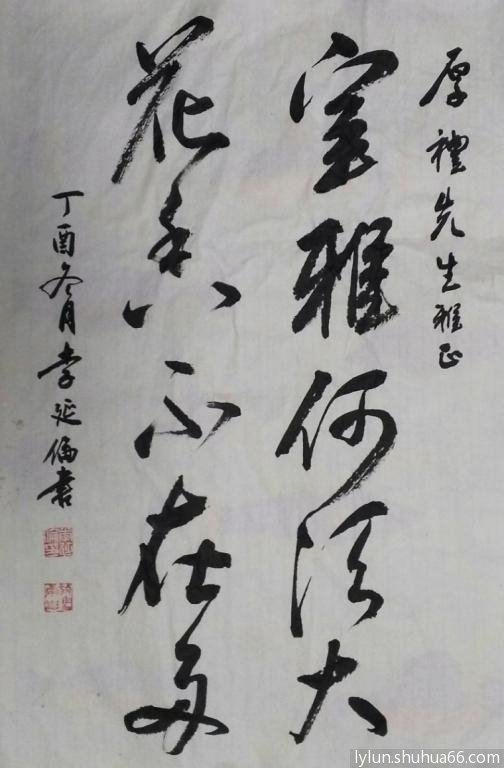 厚禮先生雅正
室雅何须大
花香不在多
丁酉冬月李延倫書
lylun.shuhua66.com